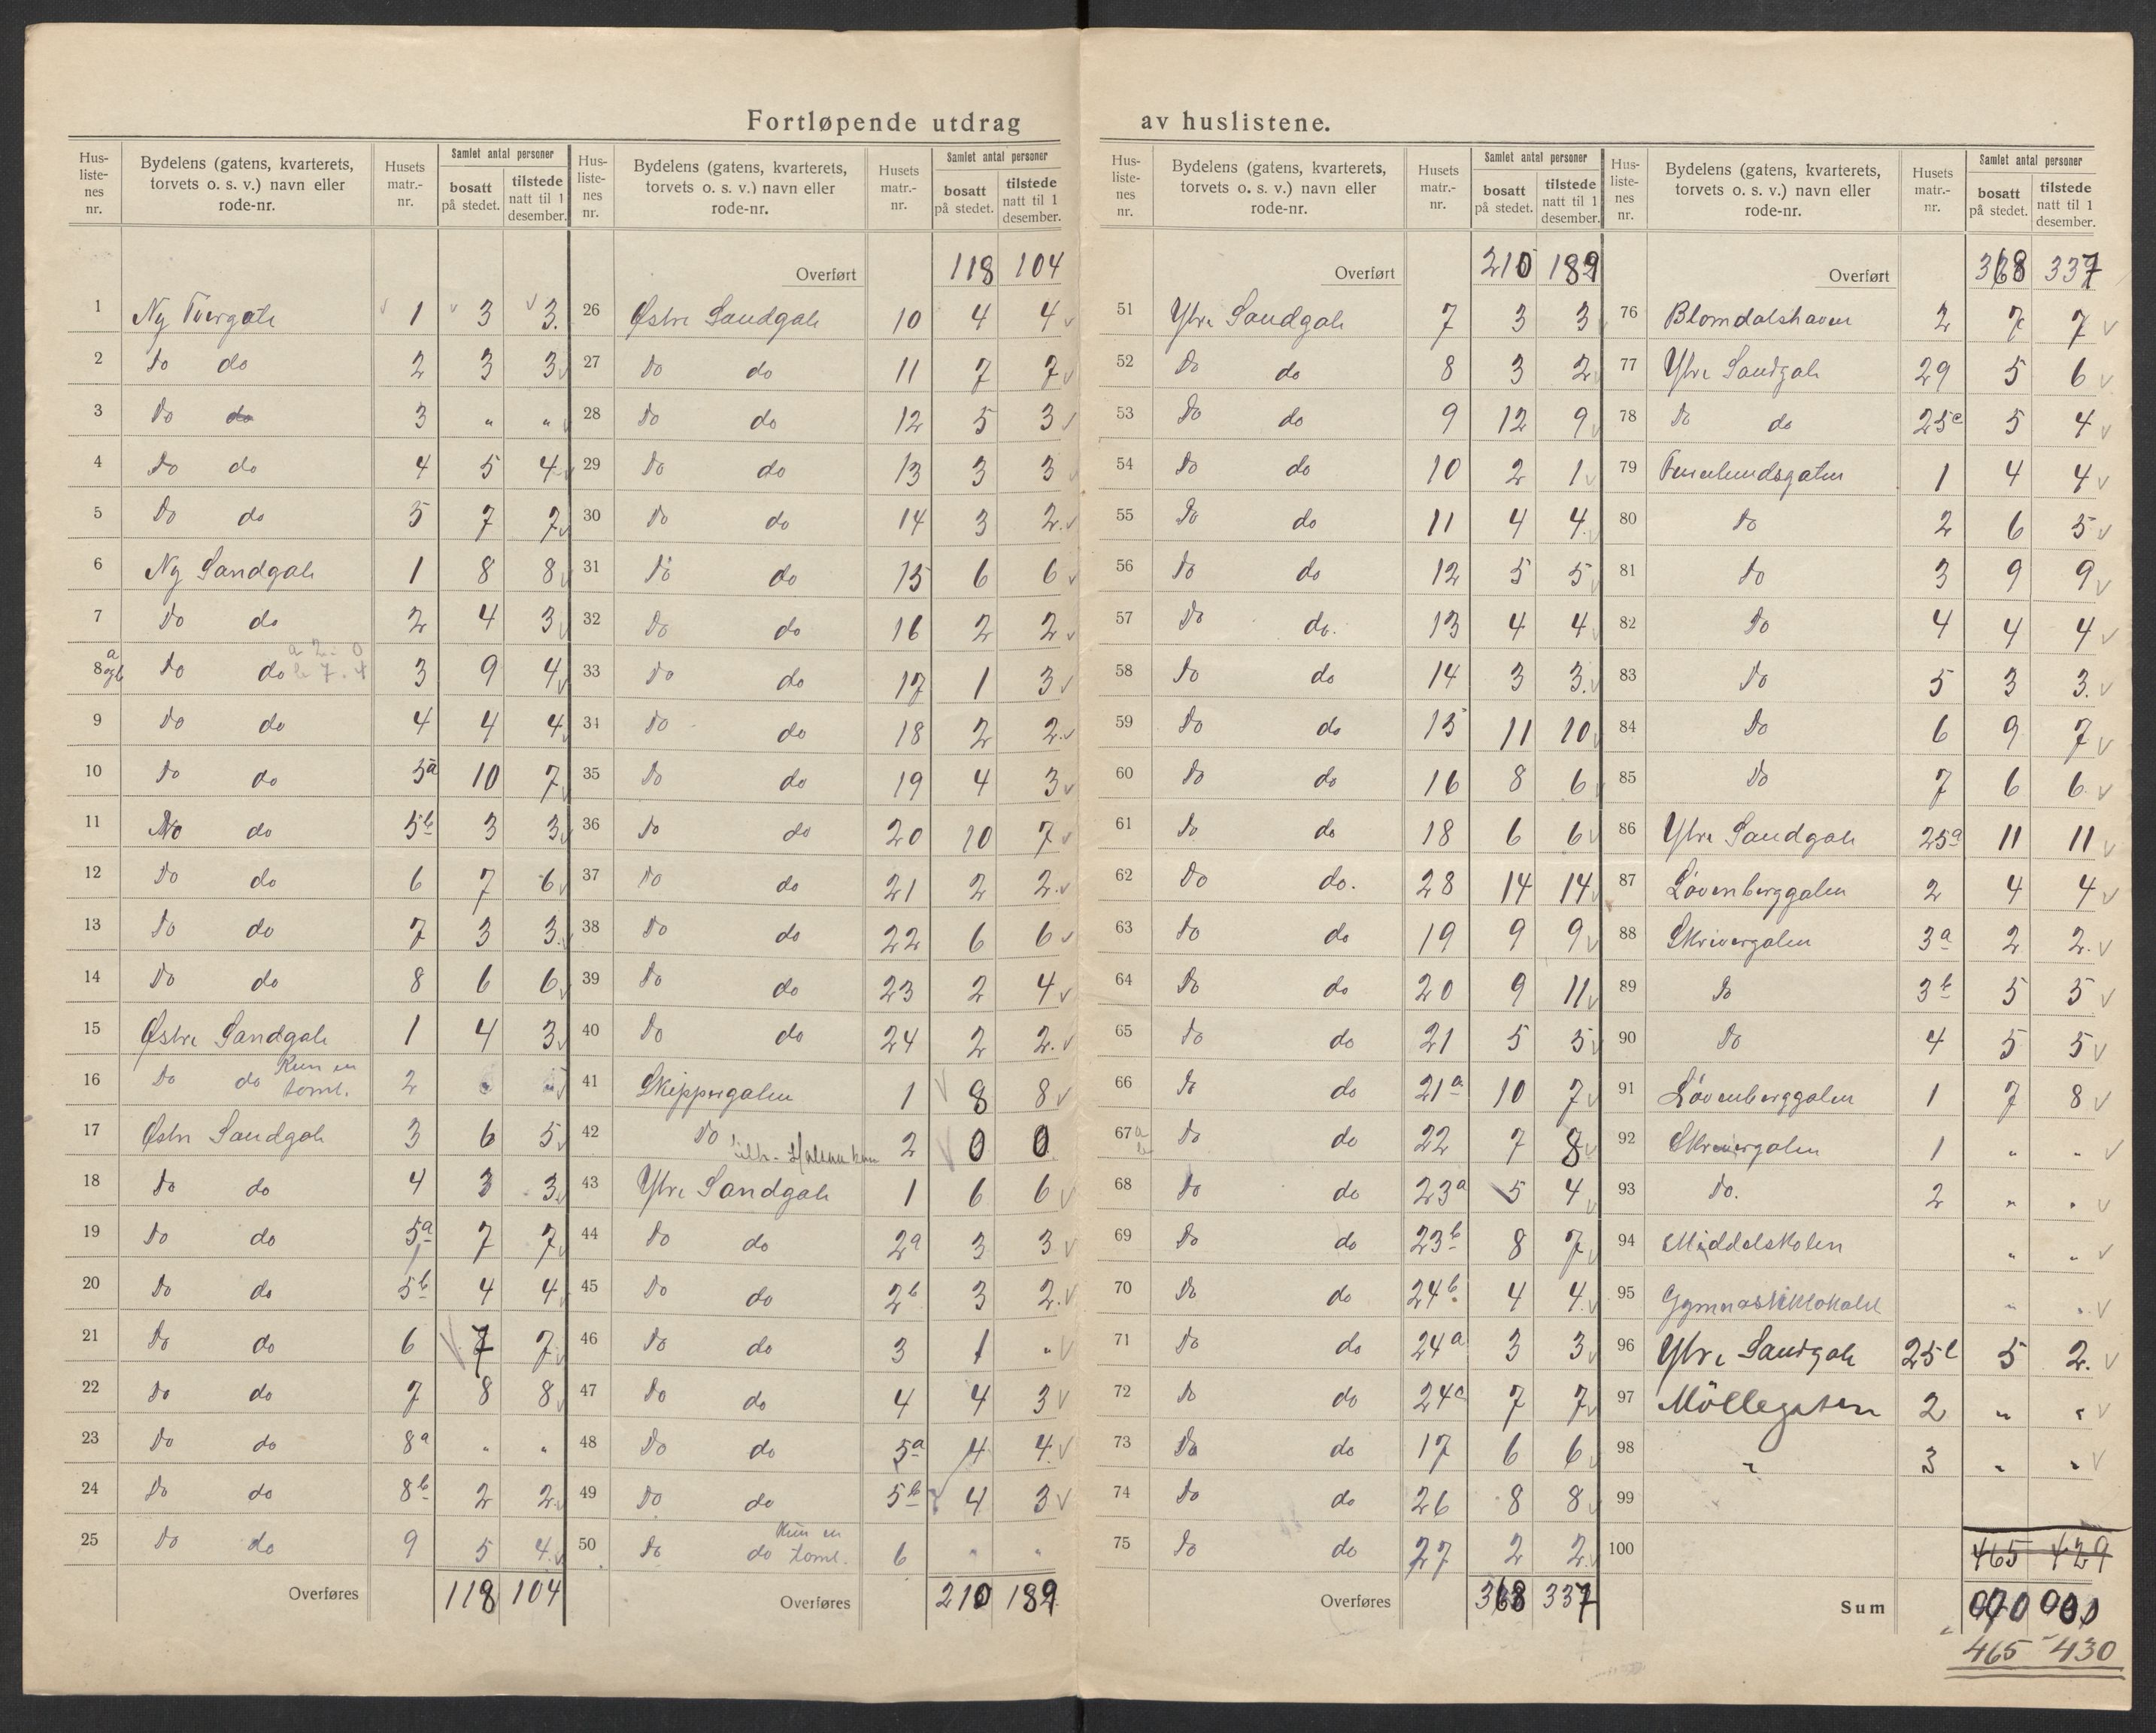 Fortløpende utdrag av huslistene.
Hus-listenes nr. Bydelens (gatens, kvarterets, torvets o. s. v.) navn eller rode-nr. Husets matr.-nr. Samlet antal personer bosatt på stedet. tilstede natt til 1 desember.
1 Ny Tvergate 1 3 3.
2 do do 2 3 3
3 do do 3 „ „
4 do do 4 5 4
5 do do 5 7 7
6 Ny Sandgate 1 8 8
7 do do 2 4 3
a 2 - 0
8 a og b do do b 7 - 4 3 9 4
9 do do 4 4 4
10 do do 5a 10 7
11 do do 5b 3 3
12 do do 6 7 6
13 do do 7 3 3.
14 do do 8 6 6
15 Østre Sandgate 1 4 3
16 do do Kun en tomt. 2 „ „
17 Østre Sandgate 3 6 5
18 do do 4 3 3
19 do do 5a 7 7
20 do do 5b 4 4
21 do do 6 7 7
22 do do 7 8 8
23 do do 8a „ „
24 do do 8b 2 2
25 do do 9 5 4
Overføres 118 104
Hus-listenes nr. Bydelens (gatens, kvarterets, torvets o. s. v.) navn eller rode-nr. Husets matr.-nr. Samlet antal personer bosatt på stedet. tilstede natt til 1 desember.
Overført 118 104
26 Østre Sandgate 10 4 4
27 do do 11 7 7
28 do do 12 5 3
29 do do 13 3 3
30 do do 14 3 2.
31 do do 15 6 6
32 do do 16 2 2
33 do do 17 1 3
34 do do 18 2 2.
35 do do 19 4 3
36 do do 20 10 7
37 do do 21 2 2.
38 do do 22 6 6
39 do do 23 2 4
40 do do 24 2 2.
41 Skippergaten 1 8 8
42 do 2 0 0
43 Ytre Sandgate 1 6 6
44 do do 2a 3 3
45 do do 2b 3 2.
46 do do 3 1 „
47 do do 4 4 3
48 do do 5a 4 4
49 do do 5b 4 3
50 do do Kun en tomt. 6 „ „
Overføres 210 189
Hus-listenes nr. Bydelens (gatens, kvarterets, torvets o. s. v.) navn eller rode-nr. Husets matr.-nr. Samlet antal personer bosatt på stedet. tilstede natt til 1 desember.
Overført 210 189
51 Ytre Sandgate 7 3 3
52 do do 8 3 2
53 do do 9 12 9
54 do do 10 2 1
55 do do 11 4 4
56 do do 12 5 5
57 do do. 13 4 4
58 do do 14 3 3.
59 do do 15 11 10
60 do do 16 8 6
61 do do 18 6 6
62 do do. 28 14 14
63 do do 19 9 9
64 do do 20 9 11
65 do do 21 5 5
66 do do 21a 10 7
67 a b do do 22 7 8
68 do do 23a 5 4
69 do do 23b 8 7
70 do do 24b 4 4
71 do do 24a 3 3
72 do do 24c 7 7
73 do do 17 6 6
74 do do 26 8 8
75 do do 27 2 2
Overføres 368 337
Hus-listenes nr. Bydelens (gatens, kvarterets, torvets o. s. v.) navn eller rode-nr. Husets matr.-nr. Samlet antal personer bosatt på stedet. tilstede natt til 1 desember.
Overført 368 337
76 Blomdalshaven 2 7 7
77 Ytre Sandgate 29 5 6
78 do do 25c 5 4
79 Furulundsgaten 1 4 4
80 do 2 6 5
81 do 3 9 9
82 do 4 4 4
83 do 5 3 3.
84 do 6 9 7
85 do 7 6 6
86 Ytre Sandgate 25a 11 11
87 Løvenberggaten 2 4 4
88 Skrivergaten 3a 2 2.
89 do 3b 5 5
90 do 4 5 5
91 Løvenberggaten 1 7 8
92 Skrivergaten 1 „ „
93 do. 2 „ „
94 Middelskolen „ „
95 Gymnastiklokalet „ „
96 Ytre Sandgate 25b 5 2.
97 Möllegaten 2 „ „
98 „ 3 „ „
99
100 465 429
Sum
465 - 430